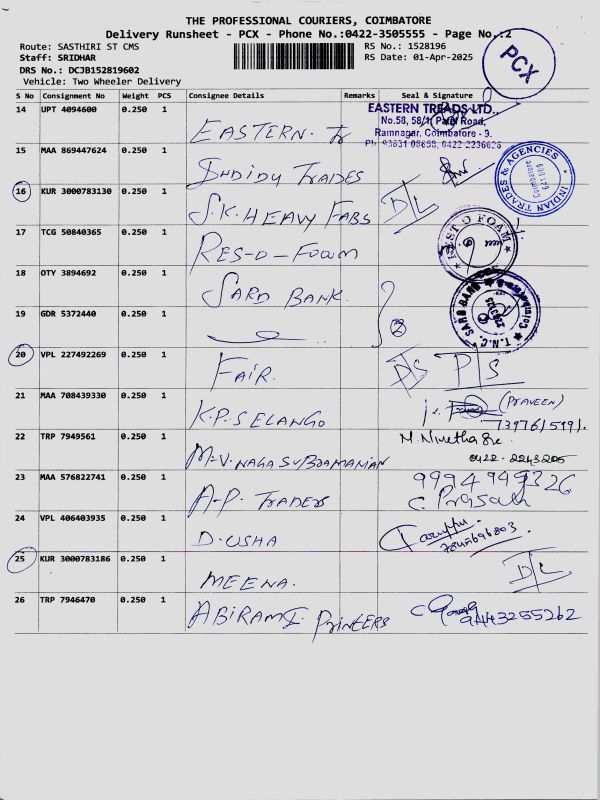 THE PROFESSIONAL COURIERS, COIMBATORE
Delivery Runsheet - PCX - Phone No.:0422-3505555 - Page No.:2
Route: SASTHIRI ST CMS
RS No.: 1528196
Staff: SRIDHAR
RS Date: 01-Apr-2025
DRS No.: DCJB152819602
Vehicle: Two Wheeler Delivery
PCX
S No Consignment No Weight PCS Consignee Details Remarks Seal & Signature
14 UPT 4094600 0.250 1 EASTERN. Tr
EASTERN TREADS LTD.,
No.58, 58/1, Patel Road,
Ramnagar, Coimbatore - 9.
Ph: 93631 08658, 0422 2236626
15 MAA 869447624 0.250 1 TRADES
INDIAN TRADES & AGENCIES
Coimbatore
641 009
16 KUR 3000783130 0.250 1 S.K. HEAVY FABS D/L
17 TCG 50840365 0.250 1 RES-O-FOAM
REST O FOAM
18 OTY 3894692 0.250 1 SARD BANK. 2
19 GDR 5372440 0.250 1
20 VPL 227492269 0.250 1 FAIR. D/S P/S
21 MAA 708439330 0.250 1 K.P.S ELANGO (PRAVEEN)
22 TRP 7949561 0.250 1 M.V. NAGASUBRAMANIAN
0422-2243205
23 MAA 576822741 0.250 1 A.P. TRADERS 9994949326
C. Prasath
24 VPL 406403935 0.250 1 D. USHA
25 KUR 3000783186 0.250 1 MEENA. D/L
26 TRP 7946470 0.250 1 ABIRAMI PRINTERS 9443255262